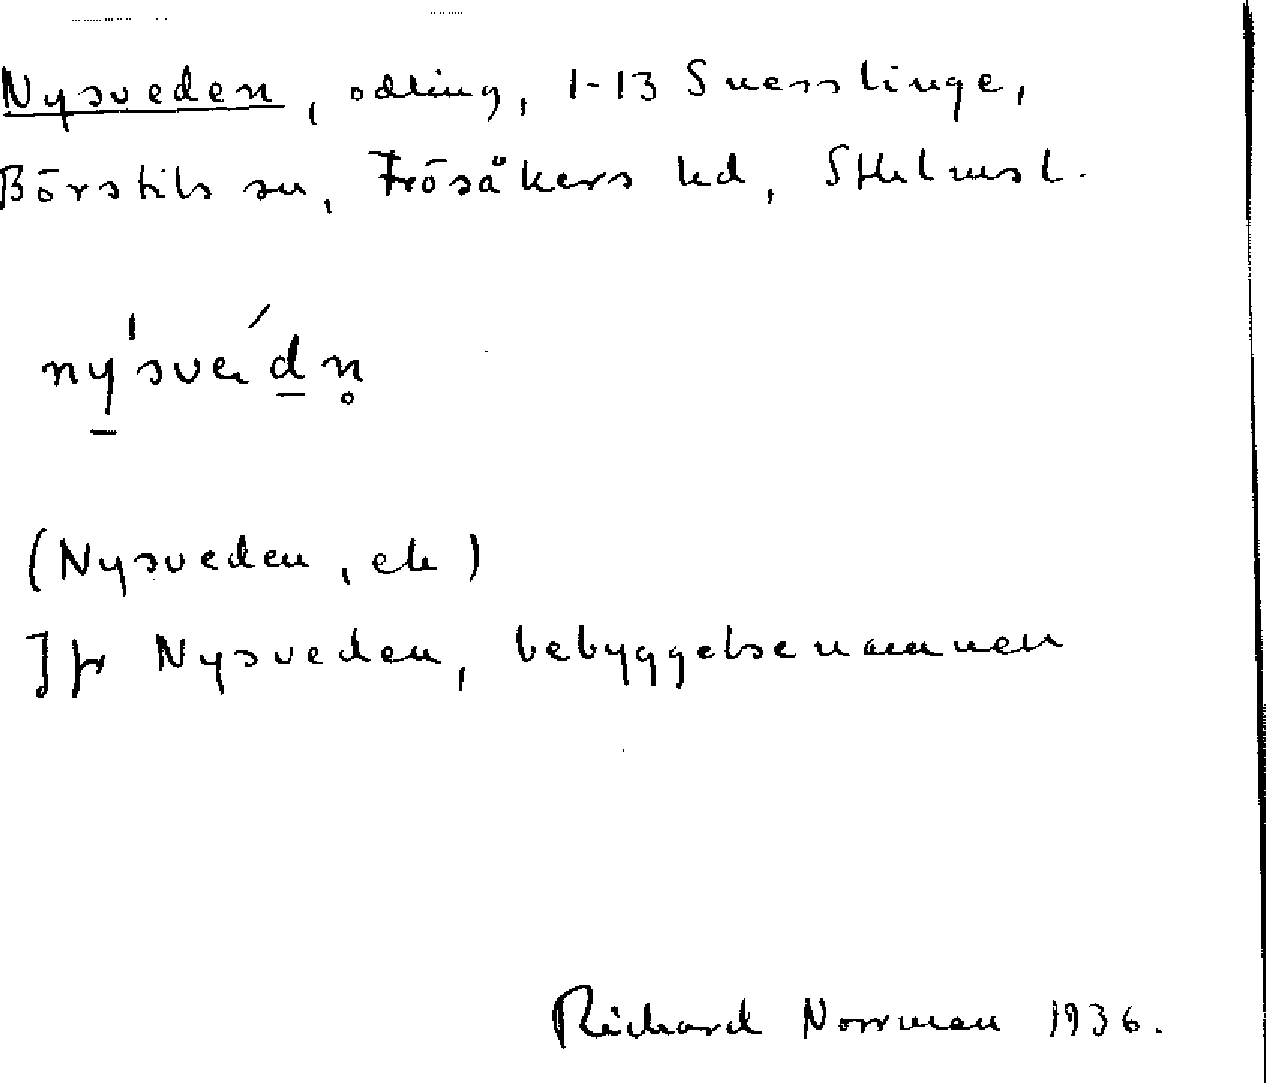 Nysveden, odling, 1-13 Snesslinge,
Börstils sn, Frösåkers hd, Sthlms l.
ny'sve´dn̥
(Nysveden, ek)
Jfr Nysveden, bebyggelsenamnen
Richard Norrman 1936.